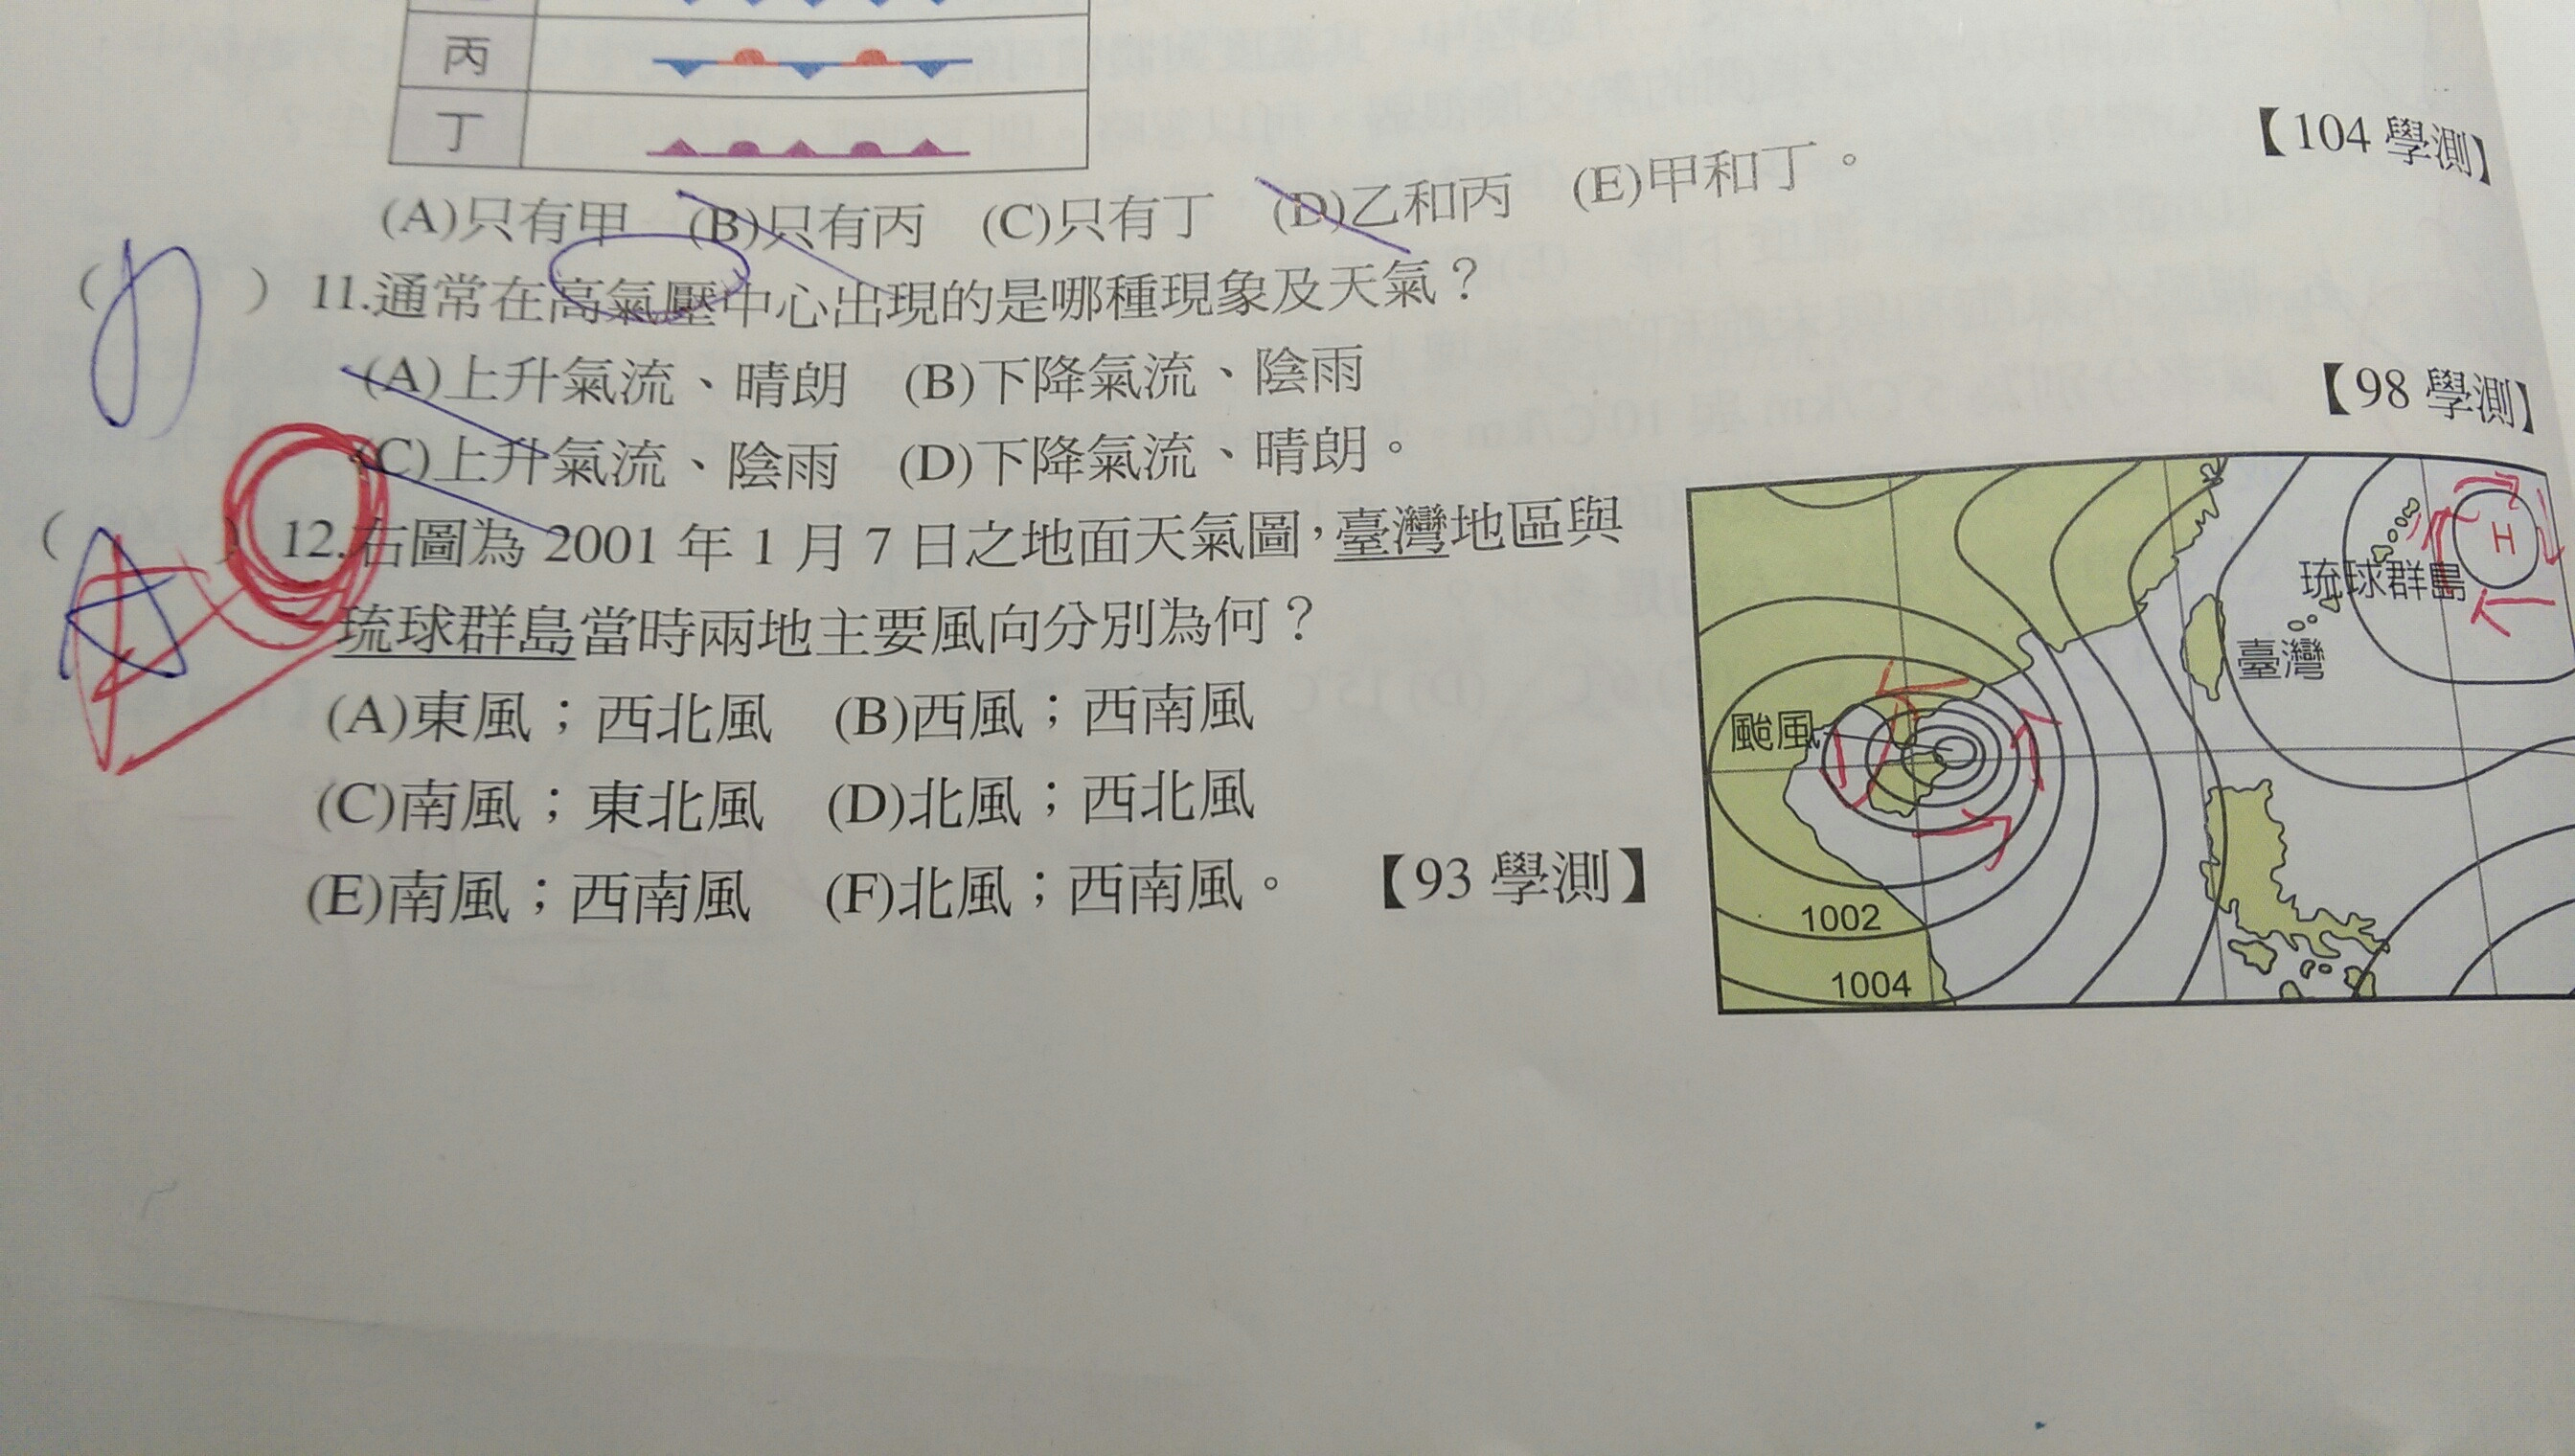 丙
丁
(A)只有甲 (B)只有丙 (C)只有丁 (D)乙和丙 (E)甲和丁。
【104 學測】
( ) 11.通常在高氣壓中心出現的是哪種現象及天氣？
(A)上升氣流、晴朗 (B)下降氣流、陰雨
(C)上升氣流、陰雨 (D)下降氣流、晴朗。
【98 學測】
( ) 12.右圖為 2001 年 1 月 7 日之地面天氣圖，臺灣地區與
琉球群島當時兩地主要風向分別為何？
(A)東風；西北風 (B)西風；西南風
(C)南風；東北風 (D)北風；西北風
(E)南風；西南風 (F)北風；西南風。 【93 學測】
H
琉球群島
臺灣
颱風
1002
1004